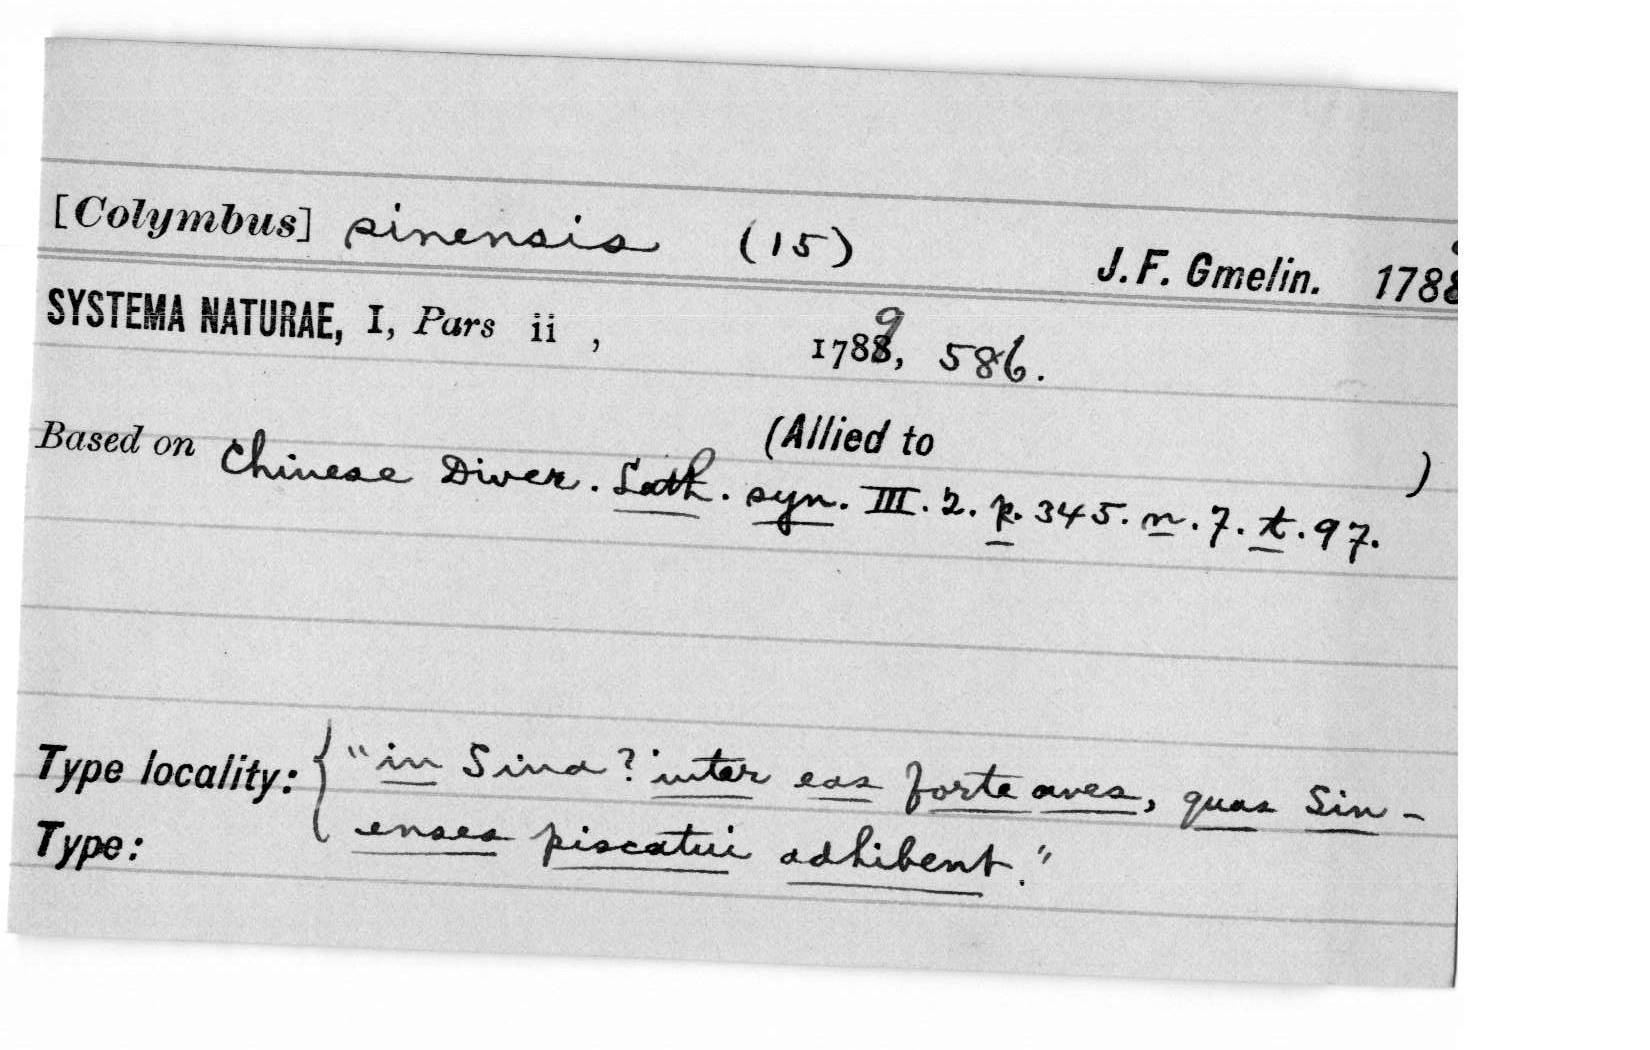 [Colymbus] sinensis (15)
J. F. Gmelin. 1788
SYSTEMA NATURAE, I, Pars ii , 1789, 586.
(Allied to )
Based on Chinese Diver. Lath. syn. III. 2. p. 345. n. 7. t. 97.
Type locality: { "in Sina? inter eas forte aves, quas Sin-
Type: enses piscatui adhibent."